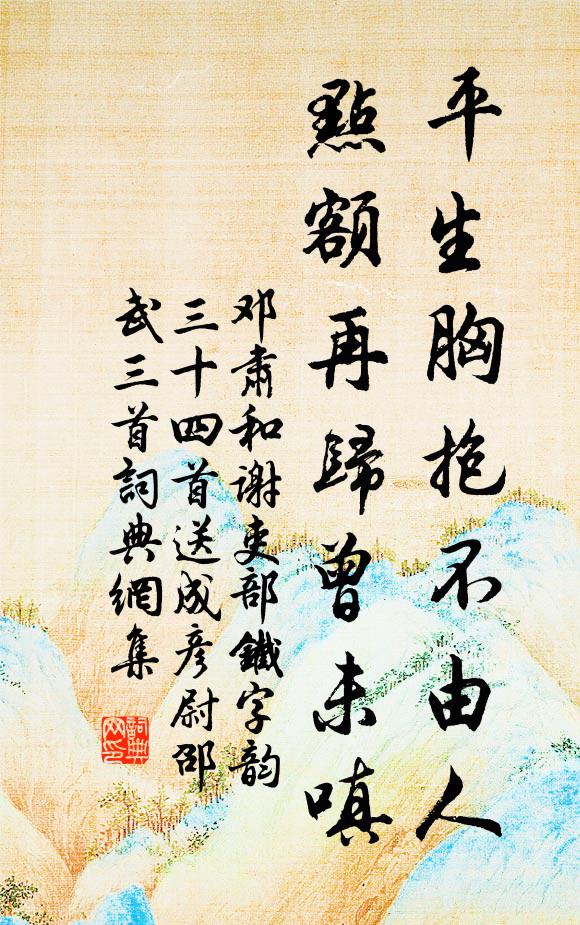 平生胸抱不由人
點額再歸曾未嗔
邓肅和謝吏部鐵字韵
三十四首送成彥尉邵
武三首詞典網集
詞典
网印